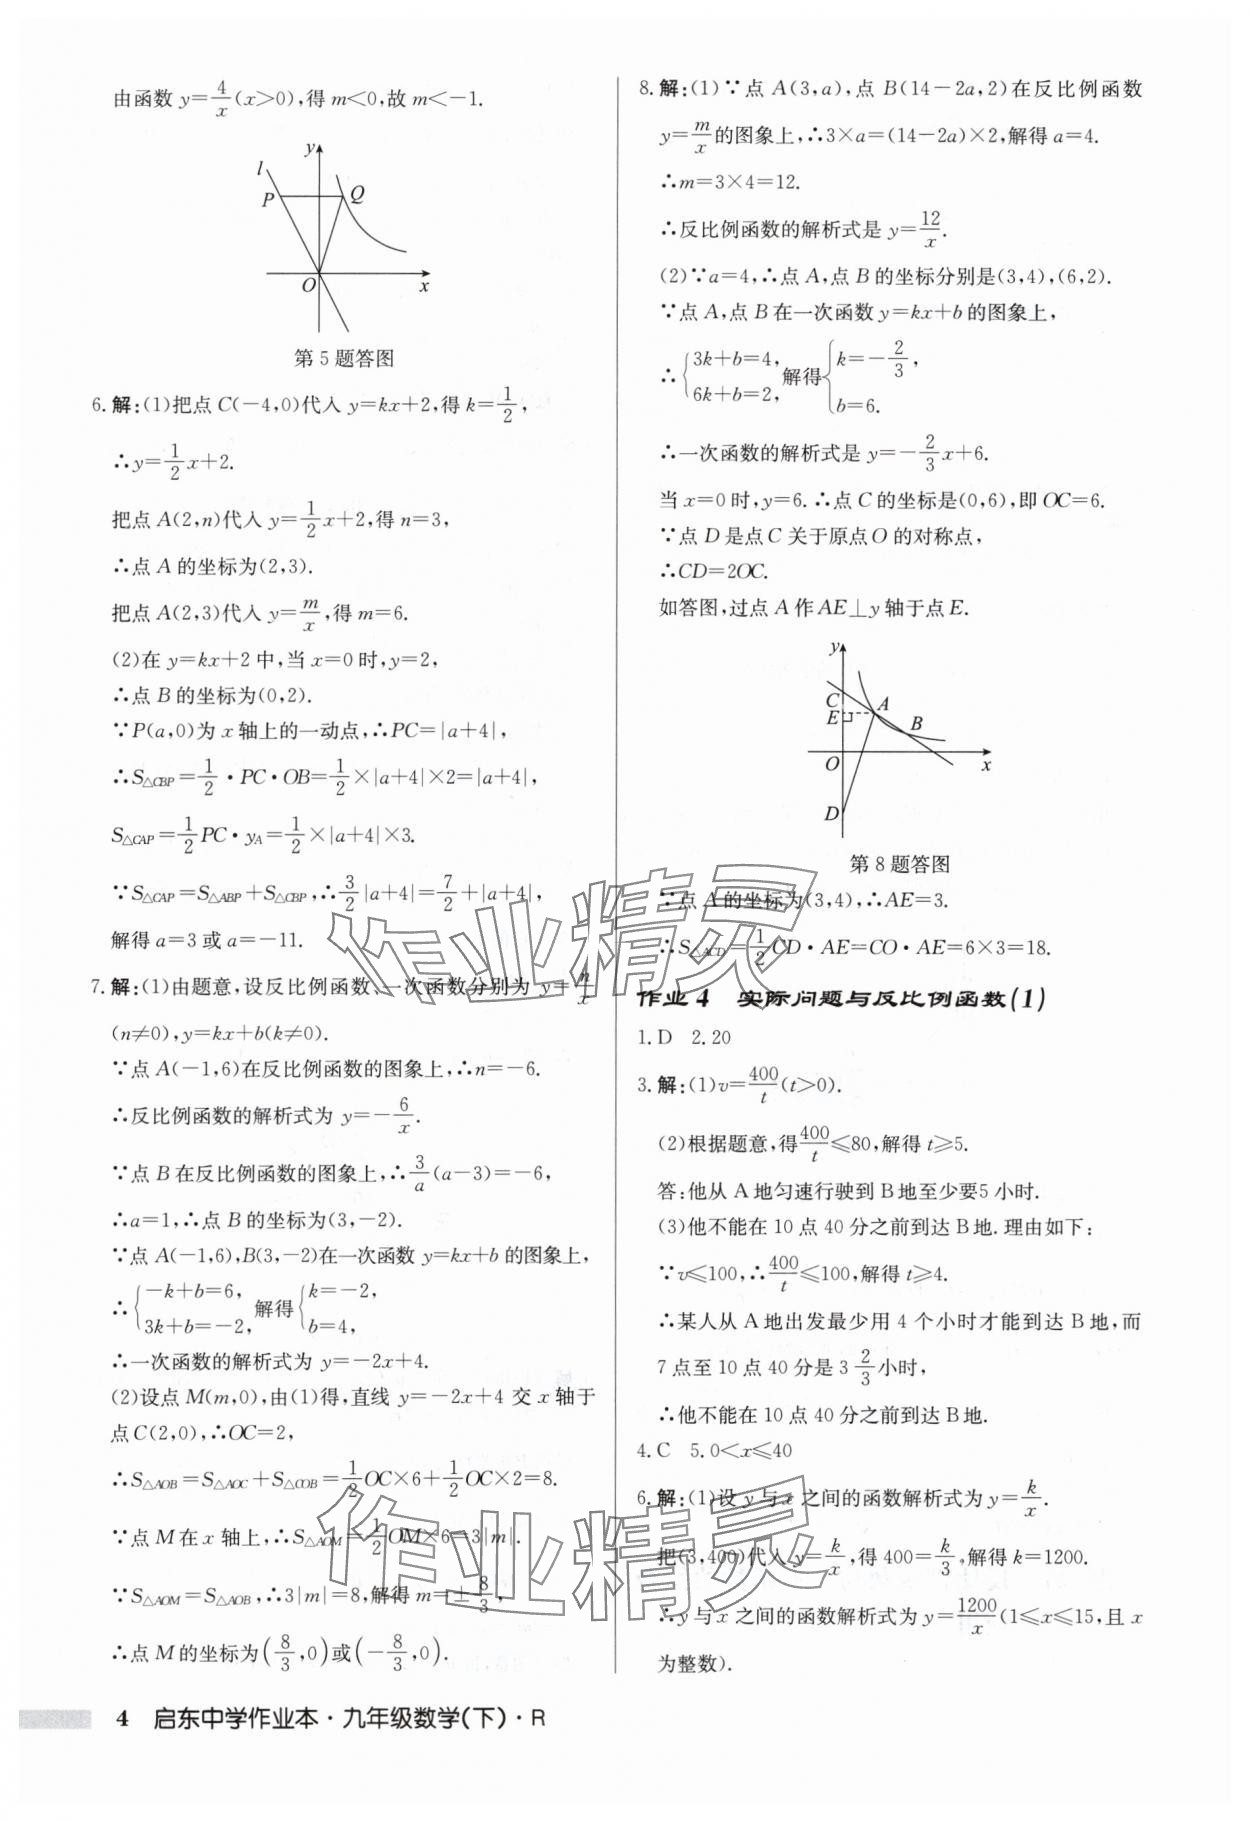 由函数 y=4/x(x>0),得 m<0,故 m<-1.
l
y
P
Q
O
x
第5题答图
6.解:(1)把点 C(-4,0)代入 y=kx+2,得 k=1/2,
∴y=1/2x+2.
把点 A(2,n)代入 y=1/2x+2,得 n=3,
∴点 A 的坐标为(2,3).
把点 A(2,3)代入 y=m/x,得 m=6.
(2)在 y=kx+2 中,当 x=0 时,y=2,
∴点 B 的坐标为(0,2).
∵P(a,0)为 x 轴上的一动点,∴PC=|a+4|,
∴S△CBP=1/2·PC·OB=1/2×|a+4|×2=|a+4|,
S△CAP=1/2PC·yA=1/2×|a+4|×3.
∵S△CAP=S△ABP+S△CBP,∴3/2|a+4|=7/2+|a+4|,
解得 a=3 或 a=-11.
7.解:(1)由题意,设反比例函数、一次函数分别为 y=n/x
(n≠0),y=kx+b(k≠0).
∵点 A(-1,6)在反比例函数的图象上,∴n=-6.
∴反比例函数的解析式为 y=-6/x.
∵点 B 在反比例函数的图象上,∴3/a(a-3)=-6,
∴a=1,∴点 B 的坐标为(3,-2).
∵点 A(-1,6),B(3,-2)在一次函数 y=kx+b 的图象上,
∴{-k+b=6, 3k+b=-2, 解得{k=-2, b=4,
∴一次函数的解析式为 y=-2x+4.
(2)设点 M(m,0),由(1)得,直线 y=-2x+4 交 x 轴于
点 C(2,0),∴OC=2,
∴S△AOB=S△AOC+S△COB=1/2OC×6+1/2OC×2=8.
∵点 M 在 x 轴上,∴S△AOM=1/2OM×6=3|m|.
∵S△AOM=S△AOB,∴3|m|=8,解得 m=±8/3,
∴点 M 的坐标为(8/3,0)或(-8/3,0).
8.解:(1)∵点 A(3,a),点 B(14-2a,2)在反比例函数
y=m/x的图象上,∴3×a=(14-2a)×2,解得 a=4.
∴m=3×4=12.
∴反比例函数的解析式是 y=12/x.
(2)∵a=4,∴点 A,点 B 的坐标分别是(3,4),(6,2).
∵点 A,点 B 在一次函数 y=kx+b 的图象上,
∴{3k+b=4, 6k+b=2, 解得{k=-2/3, b=6.
∴一次函数的解析式是 y=-2/3x+6.
当 x=0 时,y=6.∴点 C 的坐标是(0,6),即 OC=6.
∵点 D 是点 C 关于原点 O 的对称点,
∴CD=2OC.
如答图,过点 A 作 AE⊥y 轴于点 E.
y
C
E
A
B
O
x
D
第8题答图
∵点 A 的坐标为(3,4),∴AE=3.
∴S△ACD=1/2CD·AE=CO·AE=6×3=18.
作业4 实际问题与反比例函数(1)
1.D 2.20
3.解:(1)v=400/t(t>0).
(2)根据题意,得400/t≤80,解得 t≥5.
答:他从 A 地匀速行驶到 B 地至少要5 小时.
(3)他不能在 10 点 40 分之前到达 B 地.理由如下:
∵v≤100,∴400/t≤100,解得 t≥4.
∴某人从 A 地出发最少用 4 个小时才能到达 B 地,而
7 点至 10 点 40 分是 3 2/3小时,
∴他不能在 10 点 40 分之前到达 B 地.
4.C 5.0<x≤40
6.解:(1)设 y 与 x 之间的函数解析式为 y=k/x.
把(3,400)代入 y=k/x,得 400=k/3,解得 k=1200.
∴y 与 x 之间的函数解析式为 y=1200/x(1≤x≤15,且 x
为整数).
4 启东中学作业本·九年级数学(下)·R
作业精灵
作业精灵